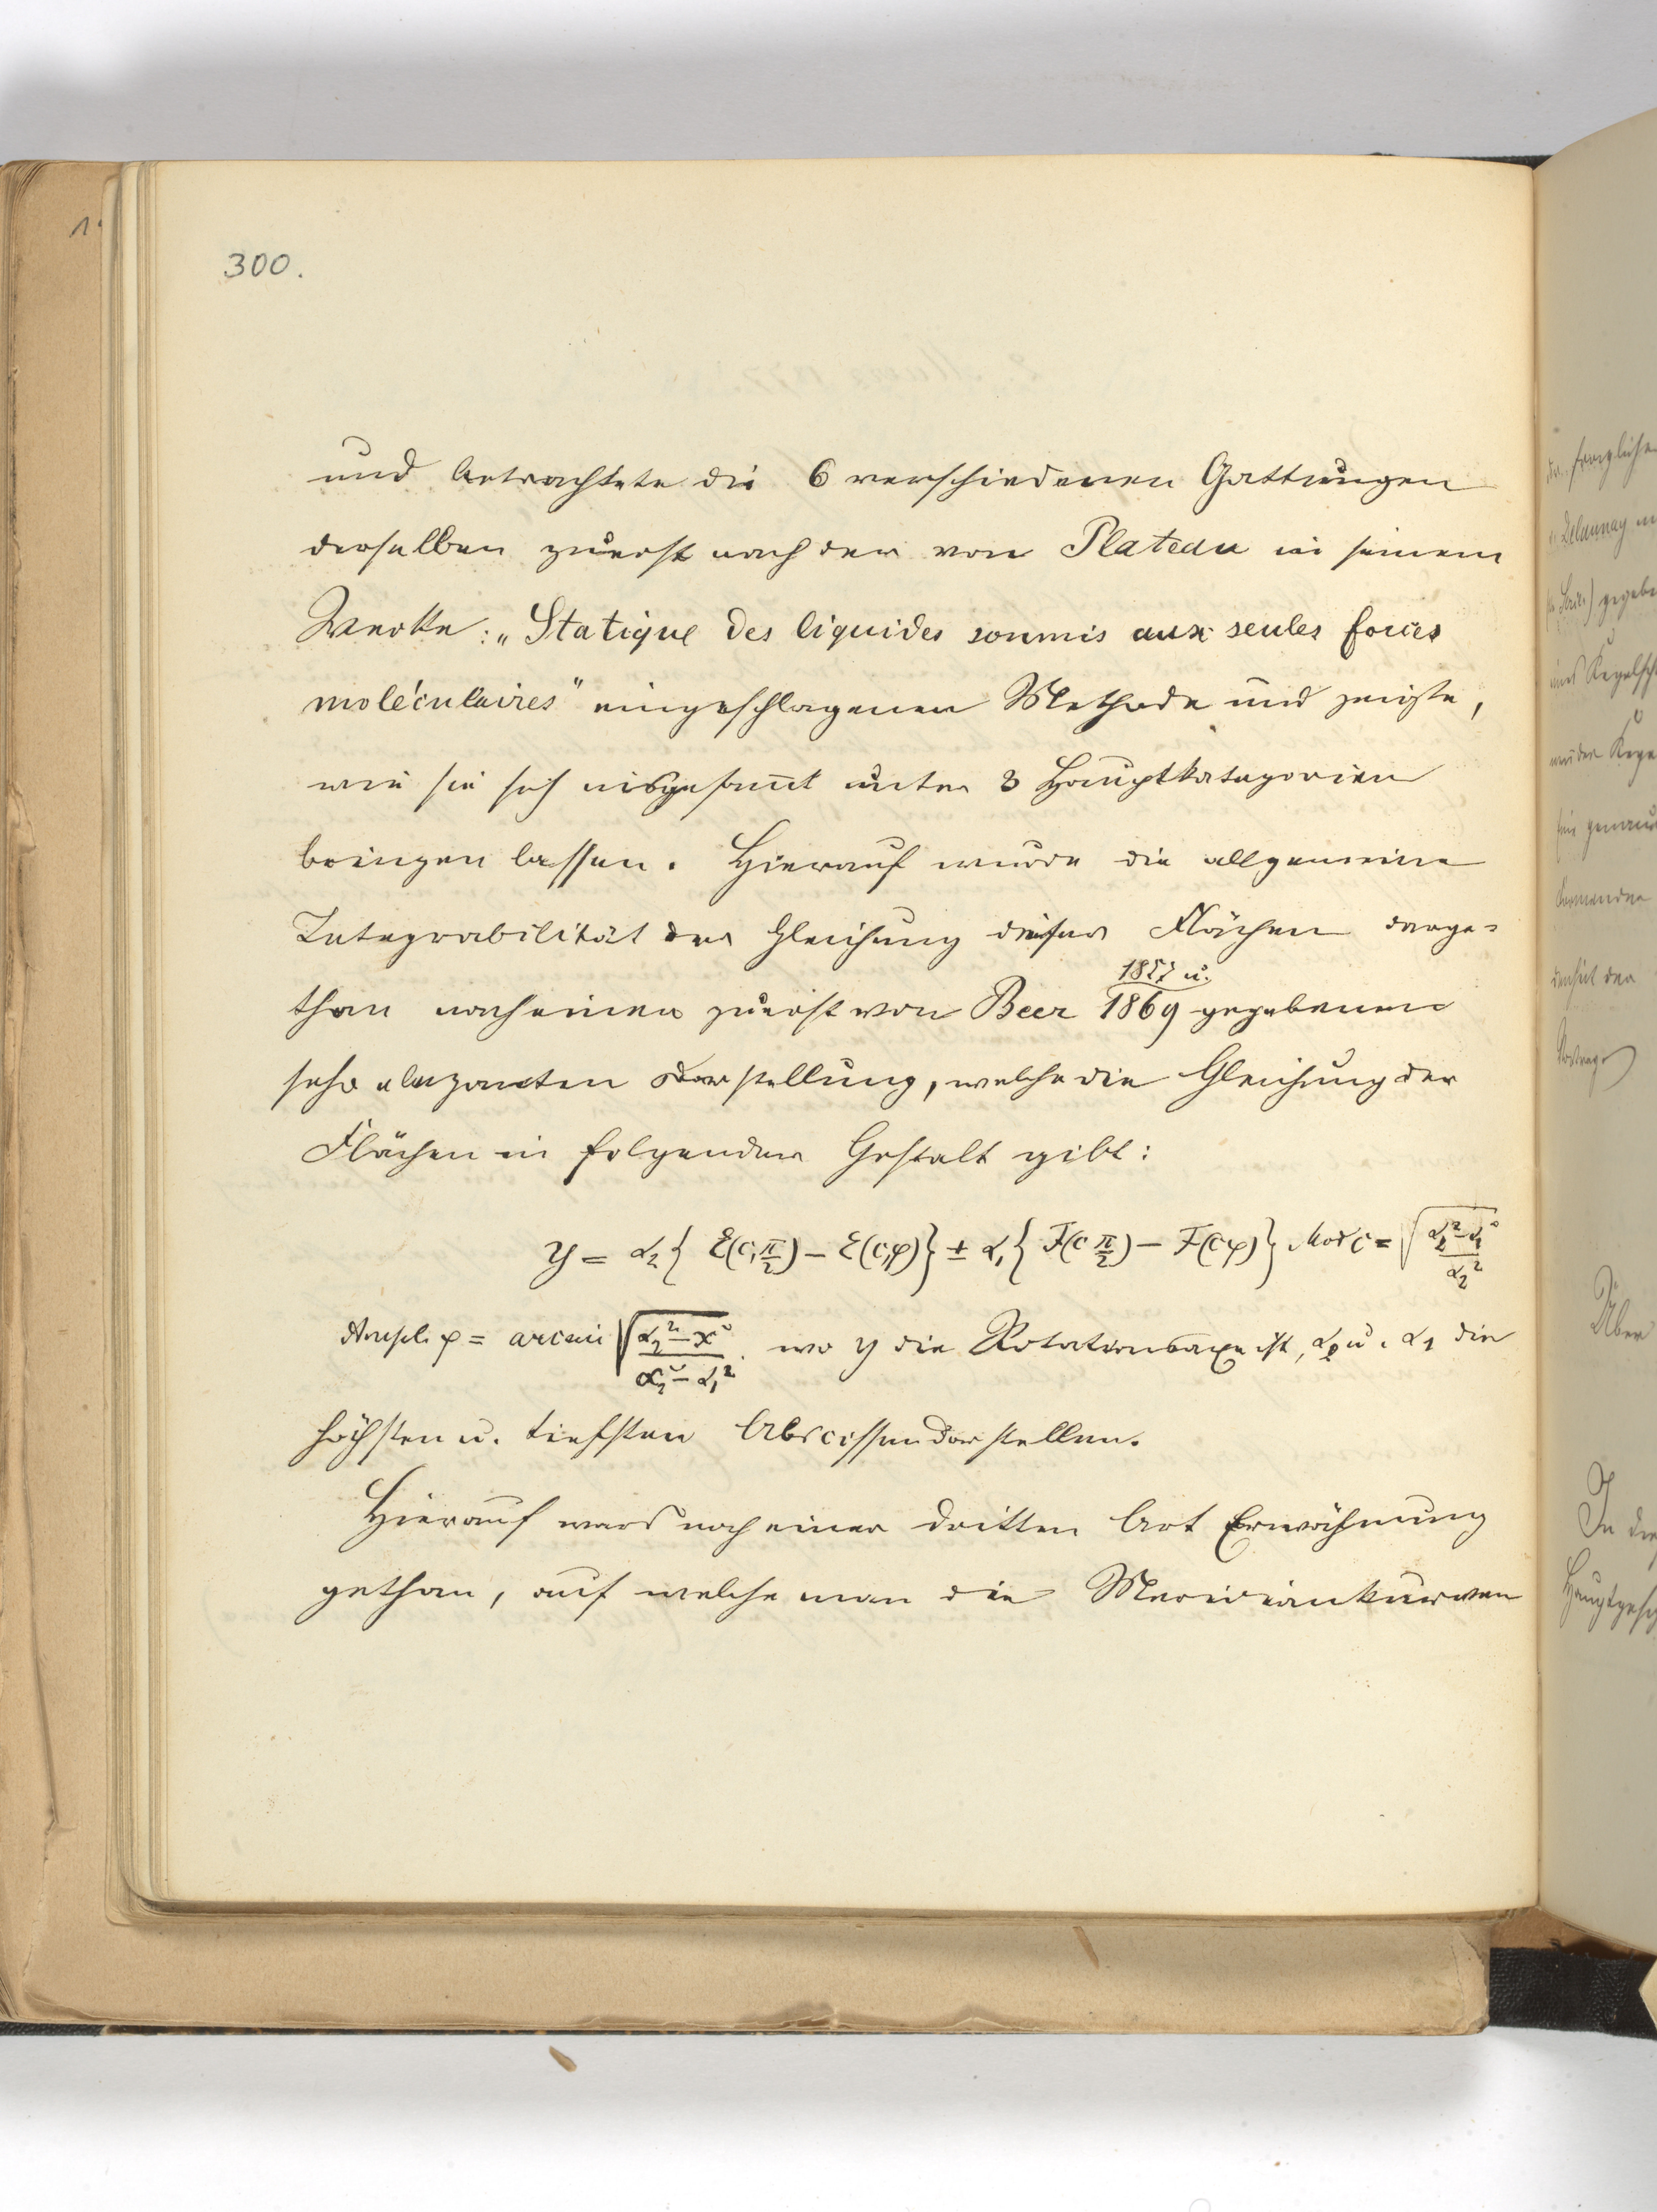 300.
und betrachtete die 6 verschiedenen Gattungen
derselben zuerst nach der von Plateau in seinem
Werke: „Statique des liquides soumis aux seules forces
moléculaires" eingeschlagenen Methode und zeigte,
wie sie sich insgesamt unter 3 Hauptkategorien
bringen lassen. Hierauf wurde die allgemeine
Integrabilität der Gleichung dieser Flächen darge-
1857 u.
than nach einer zuerst von Beer 1869 gegebenen
sehr eleganten Darstellung, welche die Gleichung der
Flächen in folgender Gestalt gibt:
y = α₂{ E(c,π/2) − E(c,φ)} ± α₁{ F(c π/2) − F(cφ)} Mod c = √((α₂² − α₁²)/α₂²)
Ampl. φ = arcsin √((α₂² − x²)/(α₂² − α₁²)). wo y die Rotationsaxe ist, α₂ u. α₁ die
höchsten u. tiefsten Abscissen darstellen.
Hierauf ward noch einer dritten Art Erwähnung
gethan, auf welche man die Meridiankurven
fragliche
Delaunay
gegebe
Kegelsch
Über
In die
Hauptgesch